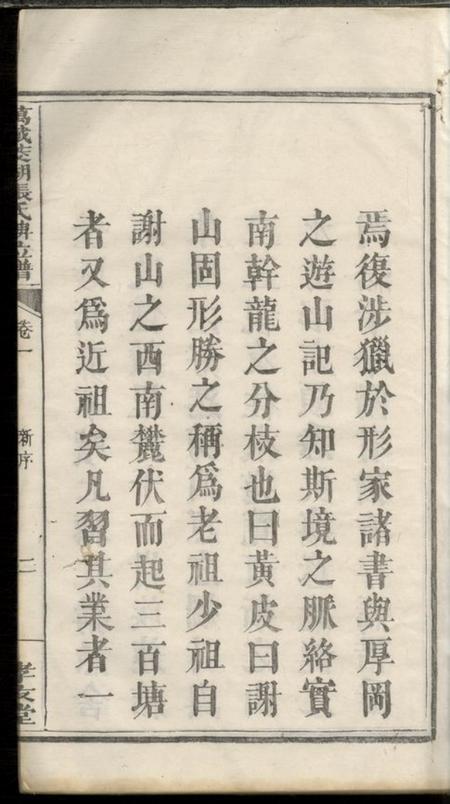 焉復涉獵於形家諸書與厚岡
之遊山記乃知斯境之脈絡實
南幹龍之分枝也曰黃皮曰謝
山固形勝之稱為老祖少祖自
謝山之西南麓伏而起三百塘
者又為近祖矣凡習其業者一
張氏
譜
卷一
新序
二
孝友堂